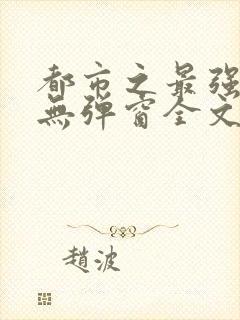 都市之最强
無弹窗全文
趙波